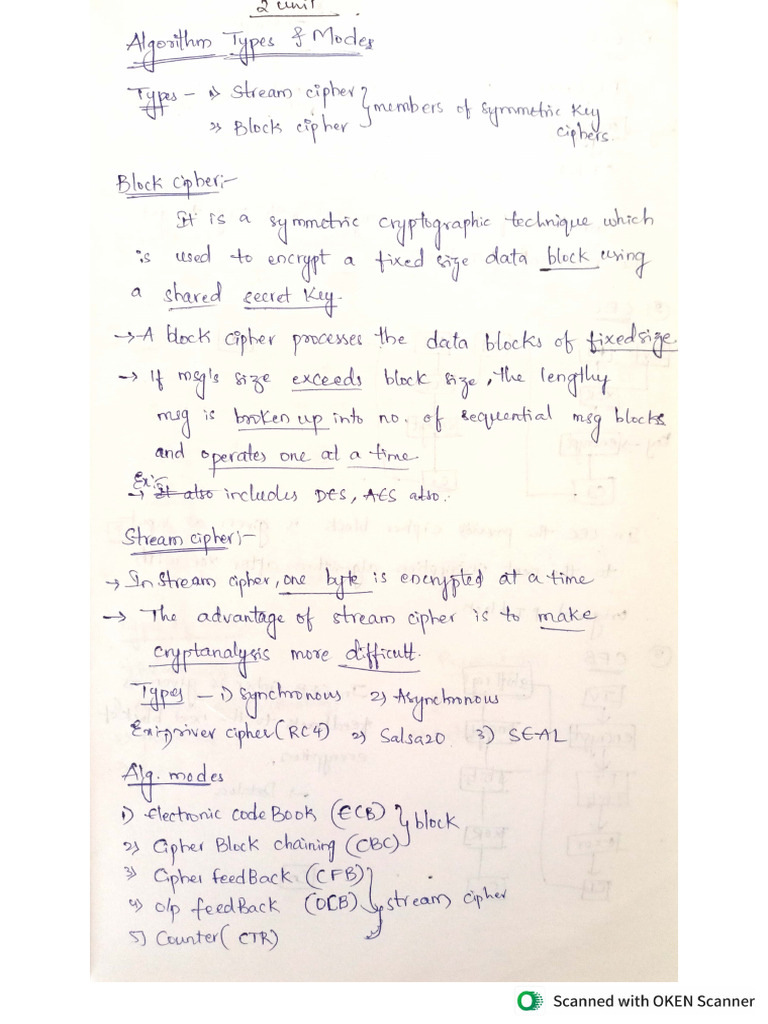 2 unit
Algorithm Types & Modes
Types - 1) Stream cipher
2) Block cipher } members of symmetric key ciphers.
Block cipher:-
It is a symmetric cryptographic technique which
is used to encrypt a fixed size data block using
a shared secret key.
→ A block cipher processes the data blocks of fixed size
→ If msg's size exceeds block size, the lengthy
msg is broken up into no. of sequential msg blocks
and operates one at a time.
Ex:-
→ It also includes DES, AES also.
Stream cipher:-
→ In stream cipher, one byte is encrypted at a time
→ The advantage of stream cipher is to make
cryptanalysis more difficult.
Types - 1) Synchronous 2) Asynchronous
Ex:- 1) river cipher (RC4) 2) Salsa20 3) SEAL
Alg. modes
1) Electronic code Book (ECB)
2) Cipher Block chaining (CBC) } block
3) Cipher feedBack (CFB)
4) o/p feedBack (OCB) } stream cipher
5) Counter (CTR)
Scanned with OKEN Scanner